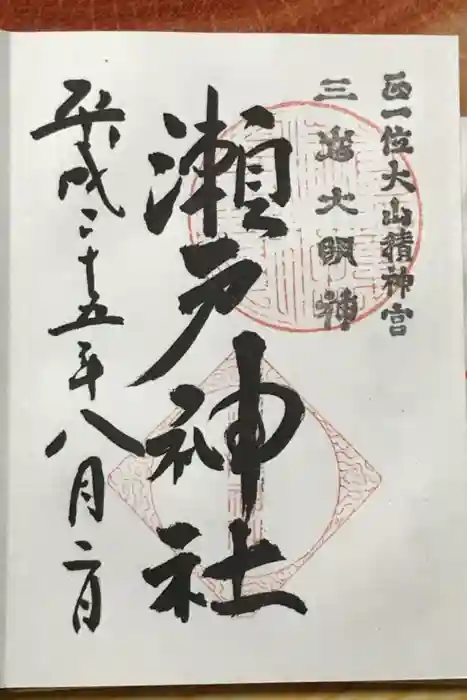 正一位大山積神宮
三島大明神
瀬戸神社
平成二十五年八月二日